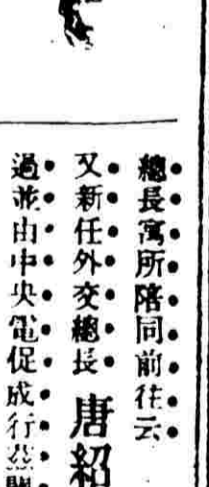 總長寓所陪同前往云
又新任外交總長 唐紹
過並由中央電促成行茲聞